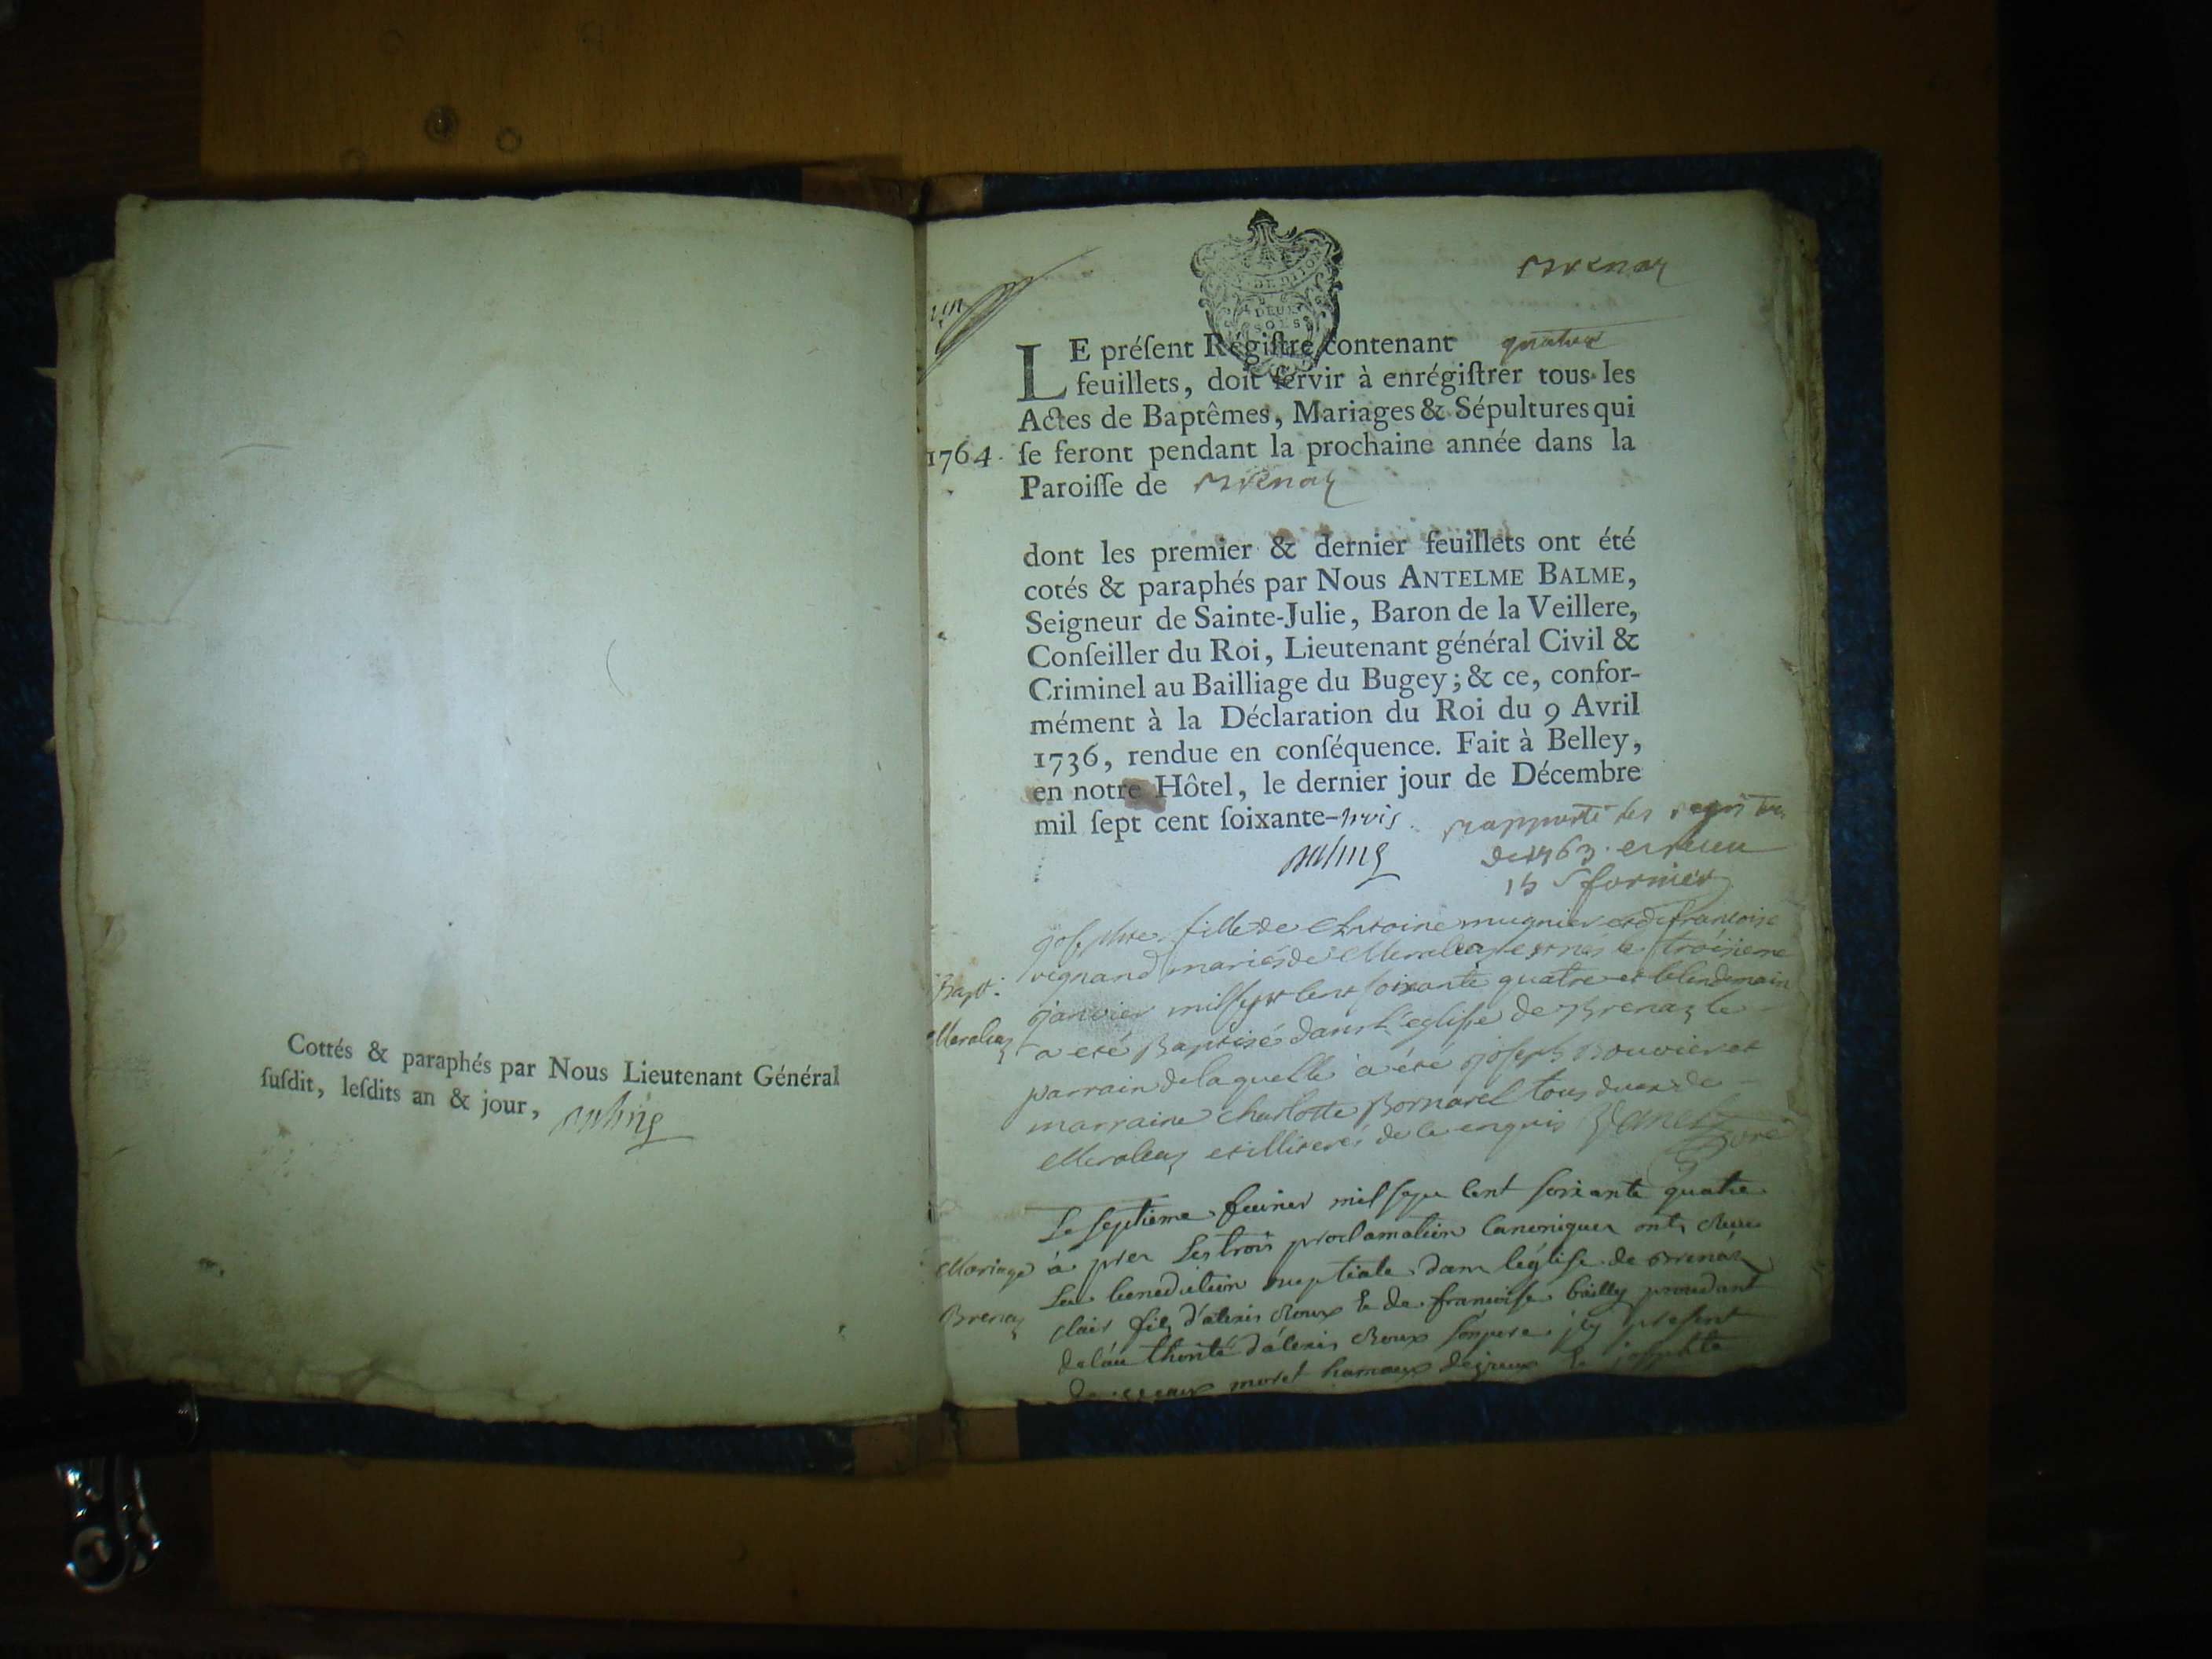 Cottés & paraphés par Nous Lieutenant Général
ſuſdit, leſdits an & jour, Balme
Brenaz
DEUX
SOLS
LE préſent Régiſtre contenant quatre
feuillets, doit ſervir à enrégiſtrer tous les
Actes de Baptêmes, Mariages & Sépultures qui
1764. ſe feront pendant la prochaine année dans la
Paroiſſe de Brenaz
dont les premier & dernier feuillets ont été
cotés & paraphés par Nous ANTELME BALME,
Seigneur de Sainte-Julie, Baron de la Veillere,
Conſeiller du Roi, Lieutenant général Civil &
Criminel au Bailliage du Bugey; & ce, confor-
mément à la Déclaration du Roi du 9 Avril
1736, rendue en conſéquence. Fait à Belley,
en notre Hôtel, le dernier jour de Décembre
mil ſept cent ſoixante-trois
Balme
rapporté les registres
de 1763. et receu
15 s fornier
josephte fille de Antoine mugnier et de francoise
vignand mariés de Meraleaz est née le troisieme
Bapt. janvier mil sept cent soixante quatre et le lendemain
Meraleaz a eté Baptisé dans l'eglise de Brenaz le
parrain de laquelle à été joseph Bouvier et
marraine charlotte Bornarel tous deux de
Meraleaz et illiterés de ce enquis Janet curé
Le septieme fevrier mil sept cent soixante quatre
Mariage à pres les trois proclamation canoniques ont recu
La benediction nuptiale dans léglise de Brenaz
Brenaz clair fils d'alexis Roux & de francoise bailly procedant
de láu thorité d'álexis Roux son pere icy present
moret hameaux & josephte